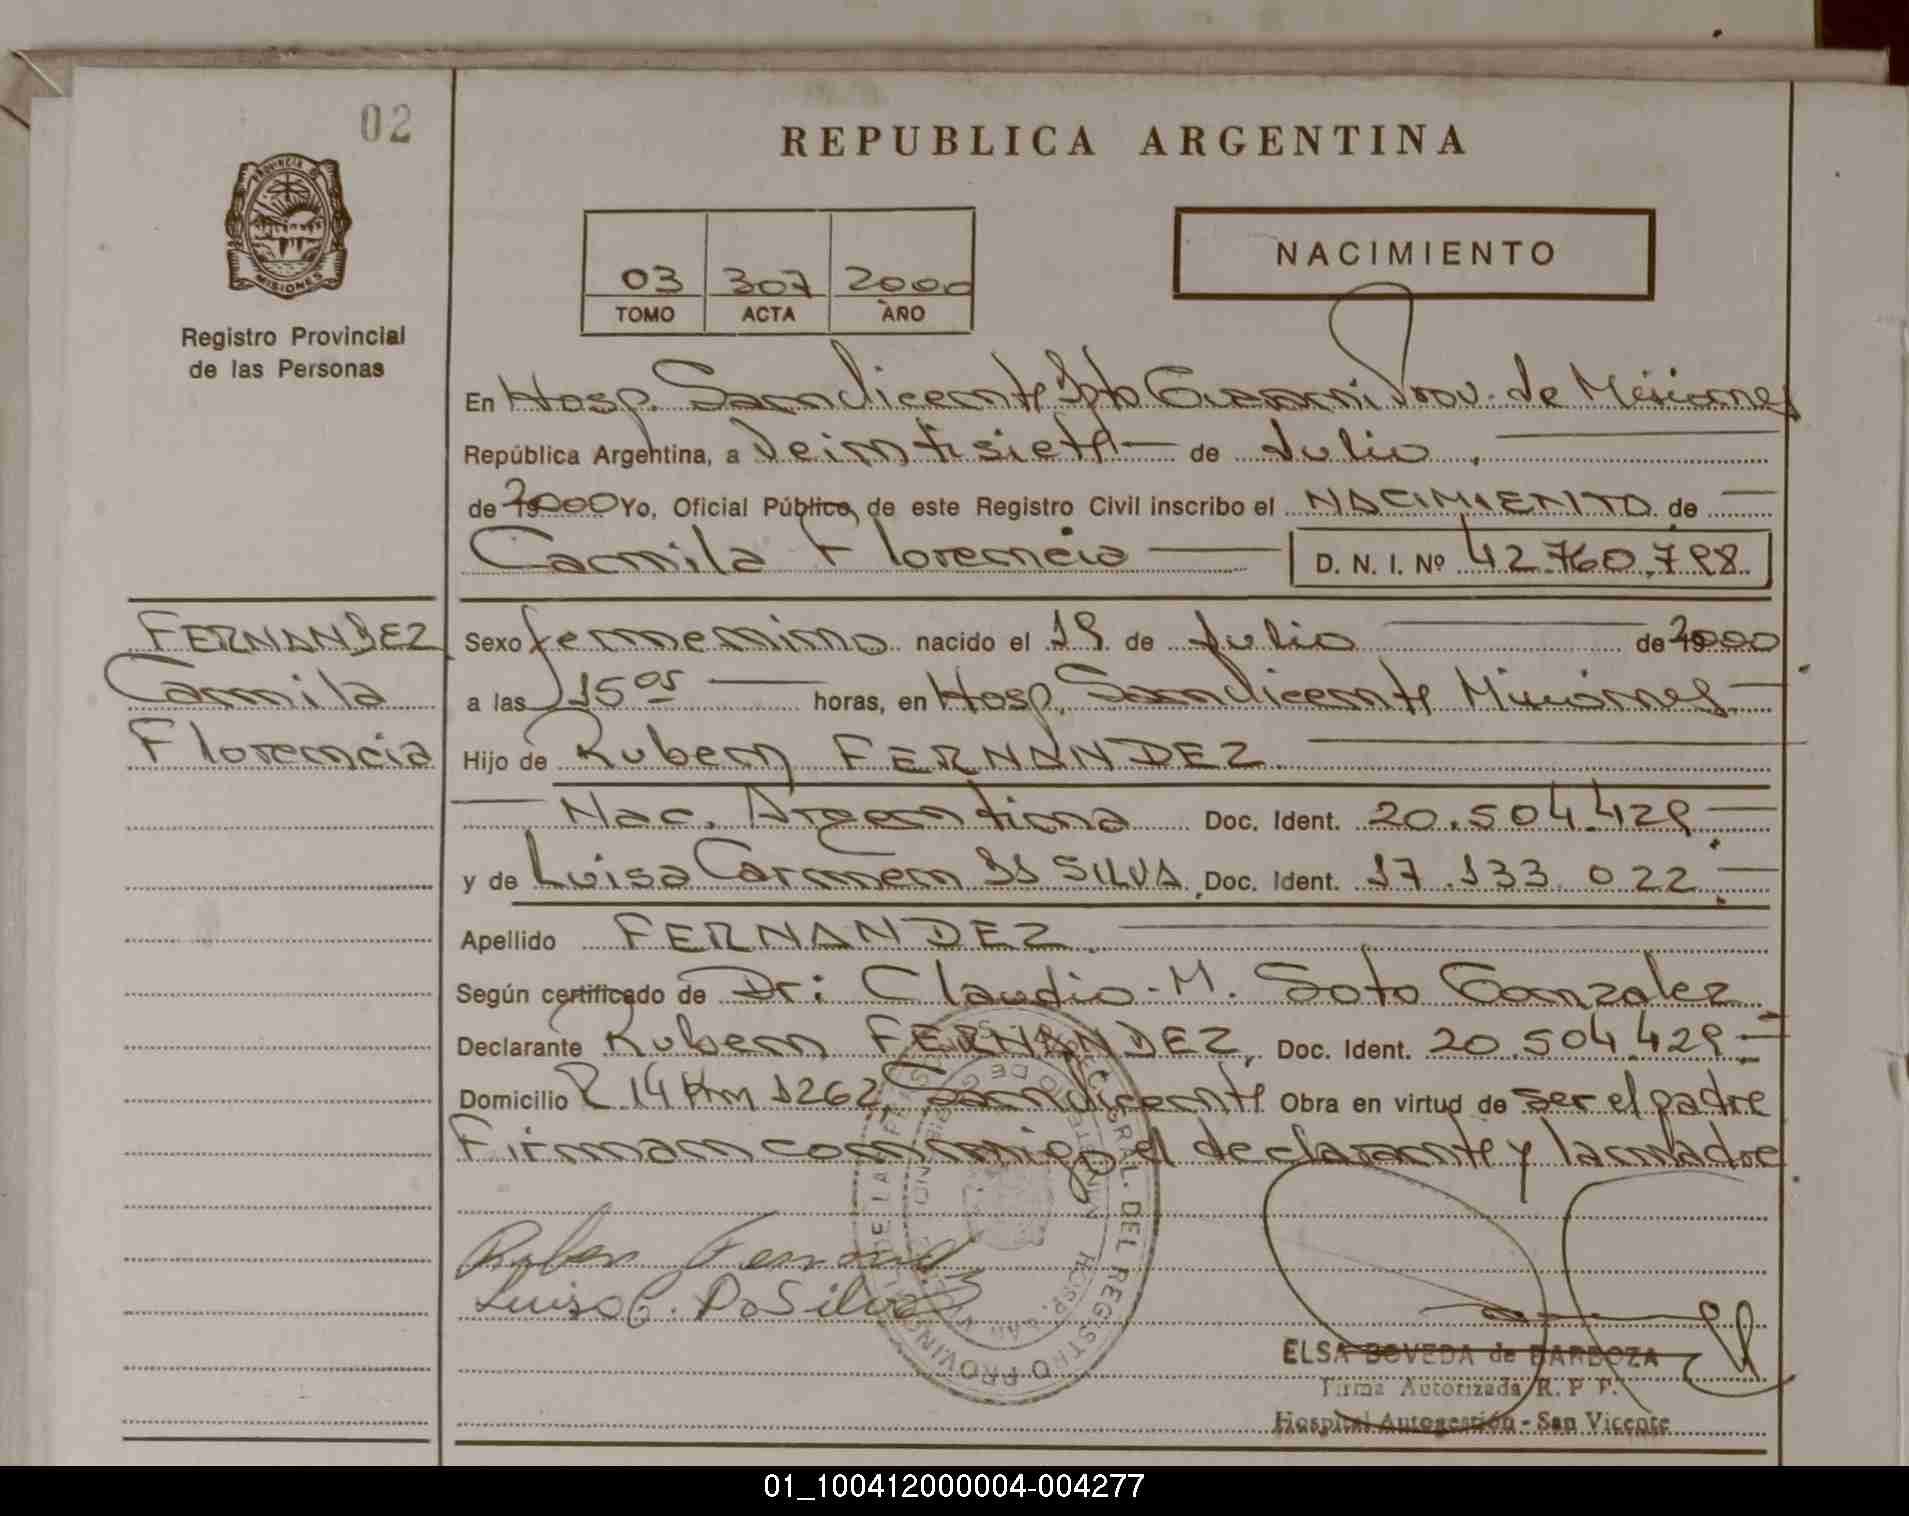 02
REPUBLICA ARGENTINA
PROVINCIA DE
MISIONES
Registro Provincial
de las Personas
NACIMIENTO
03 307 2000
TOMO ACTA AÑO
En Hosp. San Vicente Dpto Guarani Prov. de Misiones
República Argentina, a Veintisiete de Julio.
de 2000 Yo, Oficial Público de este Registro Civil inscribo el NACIMIENTO de
Camila Florencia D. N. I. Nº 42.760.798
FERNANDEZ
Camila
Florencia
Sexo femenino nacido el 19 de Julio de 2000
a las 15 05 horas, en Hosp. San Vicente Misiones
Hijo de Ruben FERNANDEZ
Nac. Argentina Doc. Ident. 20.504.429
y de Luisa Carmen DA SILVA Doc. Ident. 17.133.022
Apellido FERNANDEZ
Según certificado de Dr: Claudio M. Soto Gonzalez
Declarante Ruben FERNANDEZ, Doc. Ident. 20.504.429
Domicilio R 14 Km 1262, San Vicente Obra en virtud de ser el padre
Firman conmigo el declarante y la madre
Ruben
Luisa C. Da Silva
ELSA BOVEDA de BARBOZA
Firma Autorizada R. P. F.
Hospital Autogestión - San Vicente
01_100412000004-004277